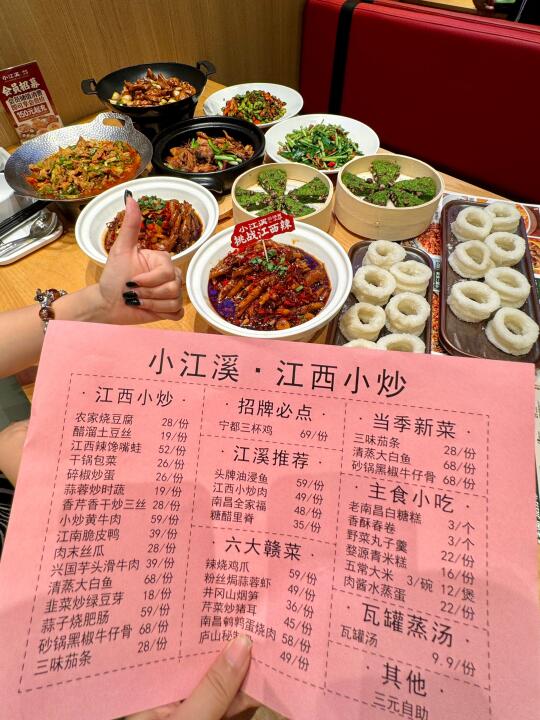 小江溪
会员招募
150元起充
小江溪
挑战江西辣
小江溪·江西小炒
江西小炒
农家烧豆腐 28/份
醋溜土豆丝 19/份
江西辣馋嘴蛙 52/份
干锅包菜 26/份
碎椒炒蛋 26/份
蒜蓉炒时蔬 19/份
香芹香干炒三丝 28/份
小炒黄牛肉 59/份
江南脆皮鸭 39/份
肉末丝瓜 28/份
兴国芋头滑牛肉 39/份
清蒸大白鱼 68/份
韭菜炒绿豆芽 18/份
蒜子烧肥肠 59/份
砂锅黑椒牛仔骨 68/份
三味茄条 28/份
招牌必点
宁都三杯鸡 69/份
江溪推荐
头牌油浸鱼 59/份
江西小炒肉 49/份
南昌全家福 48/份
糖醋里脊 35/份
六大赣菜
辣烧鸡爪 59/份
粉丝焗蒜蓉虾 49/份
井冈山烟笋 36/份
芹菜炒猪耳 45/份
南昌鹌鹑蛋烧肉 58/份
庐山秘 49/份
当季新菜
三味茄条 28/份
清蒸大白鱼 68/份
砂锅黑椒牛仔骨 68/份
主食小吃
老南昌白糖糕 3/个
香酥春卷 3/个
野菜丸子羹 22/份
婺源青米糕 16/份
五常大米 3/碗 12/煲
肉酱水蒸蛋 22/份
瓦罐蒸汤
瓦罐汤 9.9/份
其他
三元自助